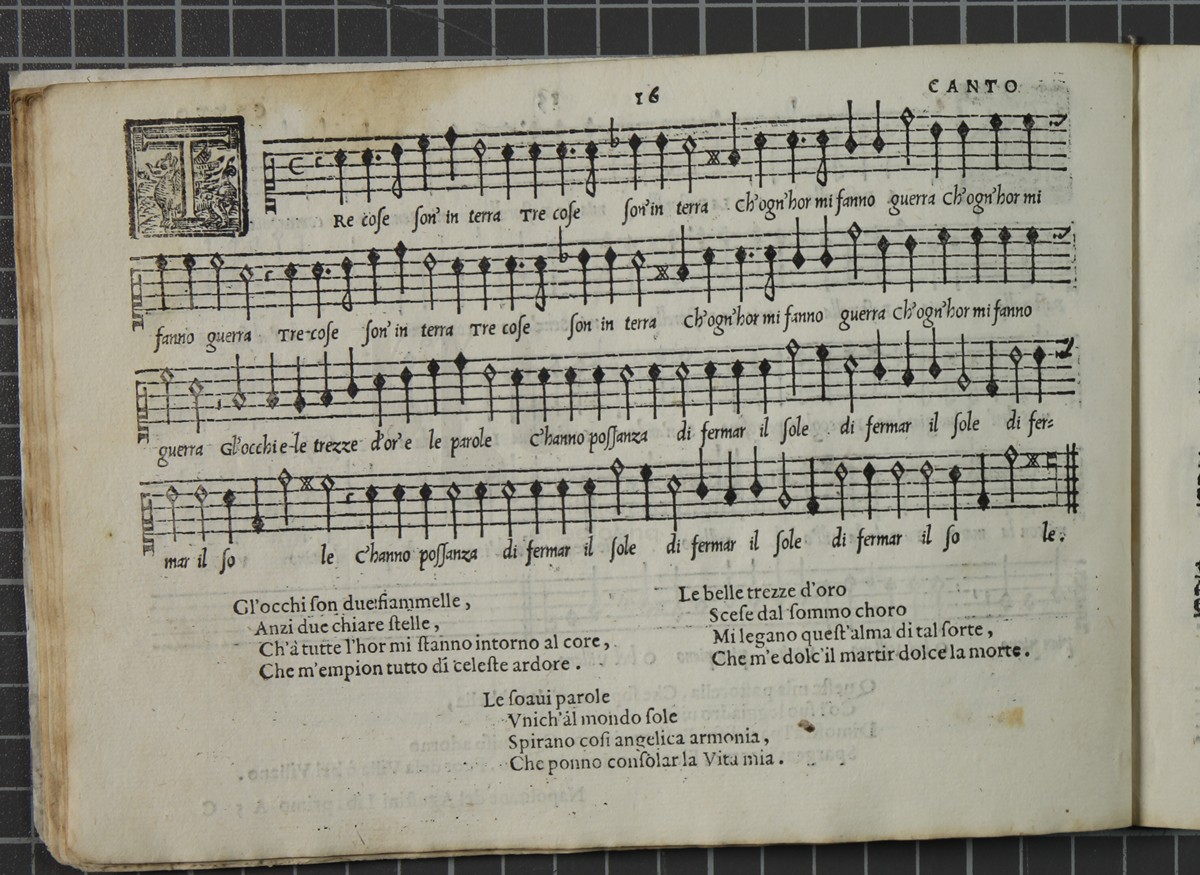 16
CANTO
TRe cose son' in terra Tre cose son' in terra Ch'ogn'hor mi fanno guerra Ch'ogn'hor mi
fanno guerra Tre cose son' in terra Tre cose son in terra Ch'ogn'hor mi fanno guerra Ch'ogn'hor mi fanno
guerra Gl'occhi e le trezze d'or' e le parole C'hanno possanza di fermar il sole di fermar il sole di fer=
mar il so le C'hanno possanza di fermar il sole di fermar il sole di fermar il so le.
Gl'occhi son due fiammelle,
Anzi due chiare stelle,
Ch'à tutte l'hor mi stanno intorno al core,
Che m'empion tutto di celeste ardore.
Le belle trezze d'oro
Scese dal sommo choro
Mi legano quest'alma di tal sorte,
Che m'e dolc'il martir dolce la morte.
Le soaui parole
Vnich'àl mondo sole
Spirano cosi angelica armonia,
Che ponno consolar la Vita mia.